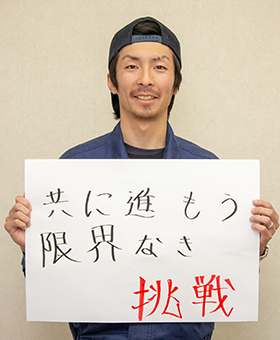 共に進もう
限界なき
挑戦